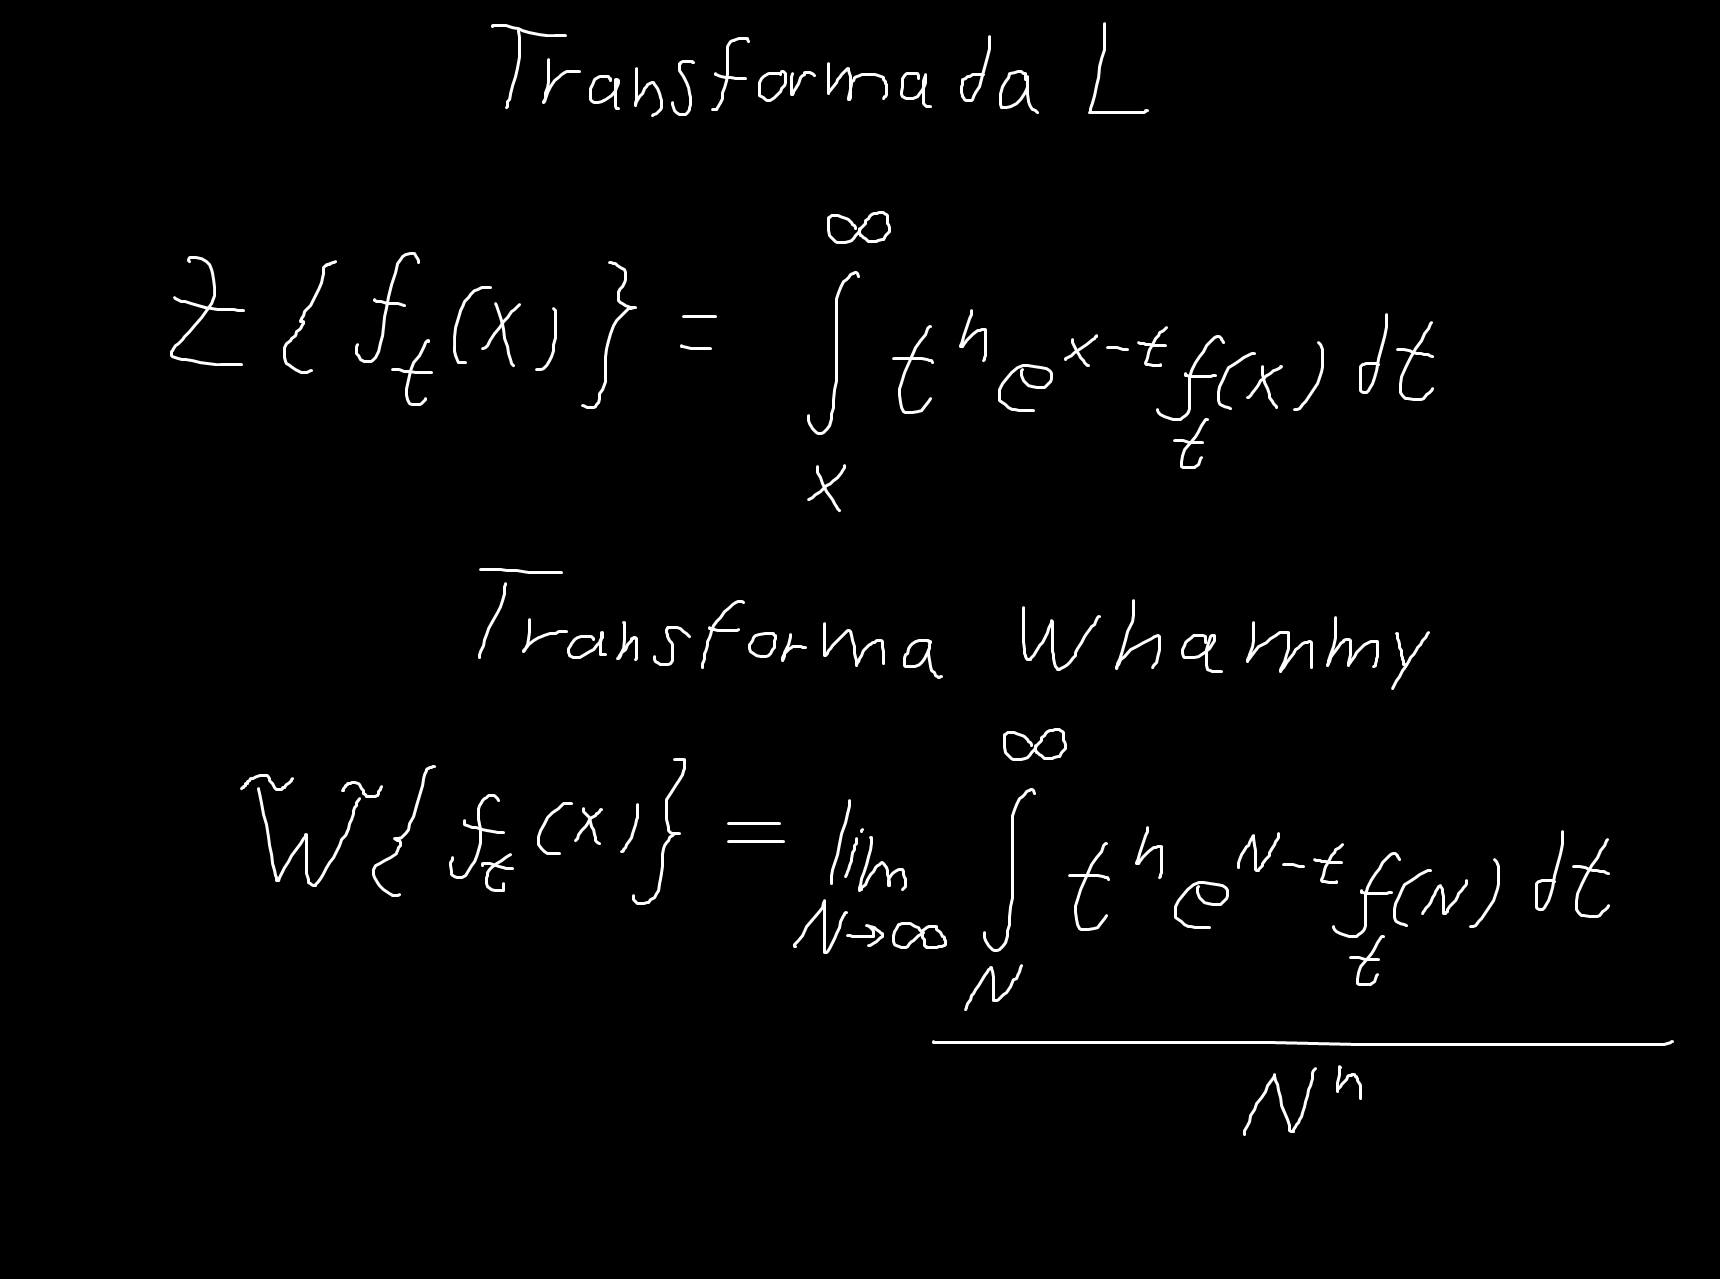 Transformada L
Ƶ{f_t(x)} = ∫_x^∞ t^n e^{x-t} f_t(x) dt
Transforma Whammy
W̃{f_t(x)} = lim_{N→∞} ∫_N^∞ t^n e^{N-t} f_t(N) dt
N^n